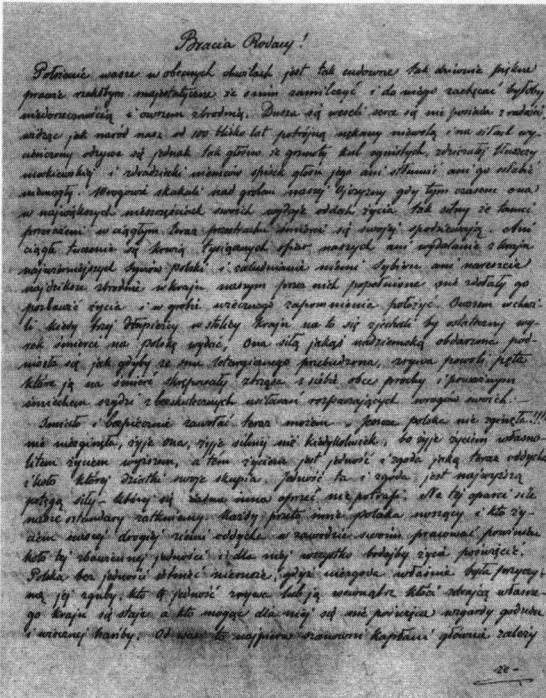 Bracia Rodacy!
Położenie wasze w obecnych chwilach jest tak cudowne tak dziwnie piękne
prawie rzekłbym majestatyczne że o nim zamilczeć i do niego zachęcać byłoby
niedorzecznością i owszem zbrodnią. Dusza się weseli serce się nie posiada z radości
widząc jak naród nasz od 100 blisko lat potrójną nękany niewolą i na siłach wy-
cieńczony odzywa się jednak tak głośno że grzmoty kul ognistych, zdziczałej tłuszczy
moskiewskiej i zdradzieckich niemców spisek głosu jego ani stłumić ani go osłabić
niemogły. Wrogowie skakali nad grobem naszej Ojczyzny gdy tym czasem ona
w największych nieszczęściach swoich wydaje oddech życia tak silny że tamci
przerażeni w ciągłym teraz przestrachu śmierci się swojej spodziewają. Ani
ciągłe tuczenie się krwią tysiącznych ofiar naszych ani wydalanie z kraju
najwierniejszych synów polski i zaludnianie niemi Sybiru ani nareszcie
najdziksze zbrodnie w kraju naszym przez nich popełnione nie zdołały go
pozbawić życia i w grobie wiecznego zapomnienia położyć. Owszem w chwi-
li kiedy trzej złupieżcy w stolicy kraju na to się zjechali by ostateczny wy-
rok śmierci na Polskę wydać, Ona siłą jakąś nadziemską obdarzona pod-
niosła się jak gdyby ze snu letargicznego przebudzona, zrywa powoli pęta
które ją na śmierć skrępowały otrząsa z siebie obce prochy i poważnym
śmiechem szydzi z bezskutecznych usiłowań rozpaczających wrogów swoich.—
Śmiało i bezpiecznie zawołać teraz możem „Jeszcze polska nie zginęła"!!!
nie niezginęła, żyje ona, żyje silniej niż kiedykolwiek, bo żyje życiem własno-
litem życiem wyższem, a tem życiem jest jedność i zgoda jaką teraz oddycha
i koło której dziatki swoje skupia. Jedność ta i zgoda jest najwyższą
potęgą siły której się żadna inna oprzeć nie potrafi. Na tej oparci sile
nasze sztandary zatknijmy. Każdy przeto imię polaka noszący i kto ży-
ciem naszej drogiej ziemi oddycha w zawodzie swoim pracować powinien
koło tej zbawiennej jedności i dla niej wszystko bodajby życie poświęcić.
Polska bez jedności istnieć niemoże, gdyż niezgoda właśnie była przyczy-
ną jej zguby, kto tę jedność zrywa lub ją wewnątrz kłóci zdrajcą własne-
go kraju się staje a kto mogąc dla niej się nie poświęca wzgardy godzien
i wiecznej hańby. Od was to najpierw szanowni kapłani głównie zależy
ze-